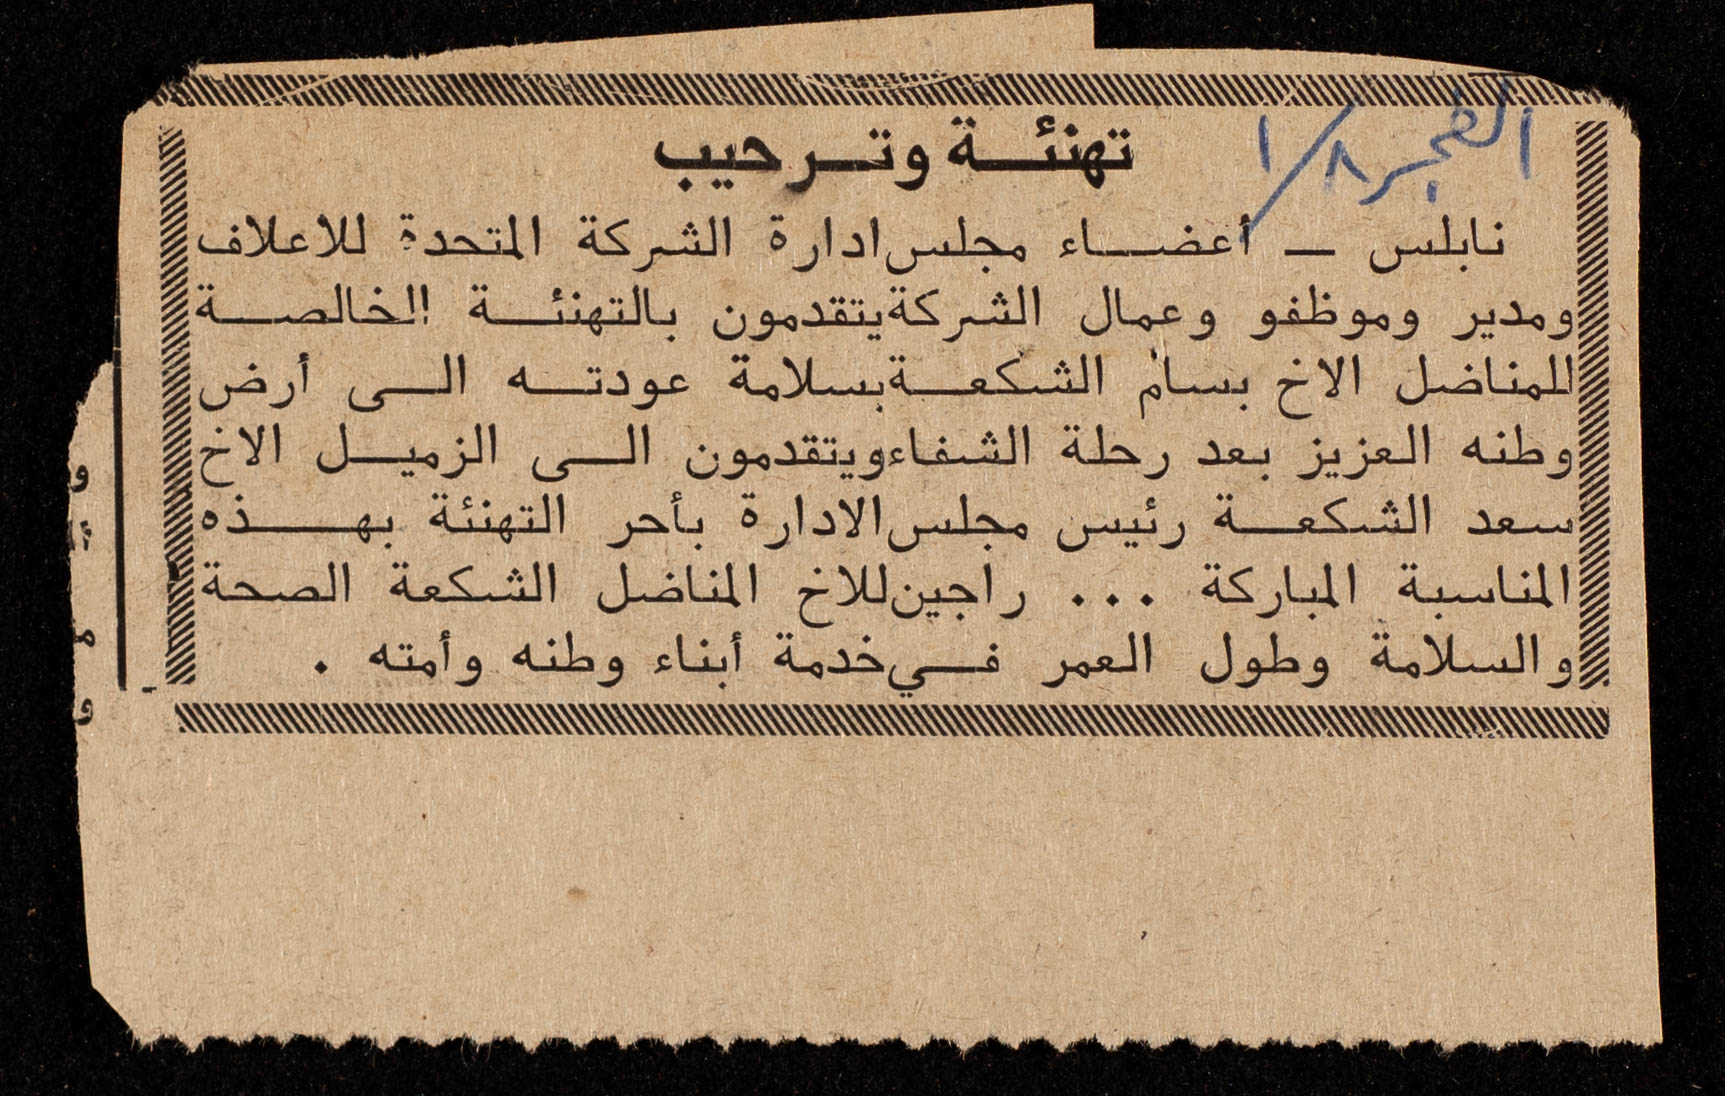 الفجر ١/٨
تهنئة وترحيب
نابلس – أعضاء مجلس ادارة الشركة المتحدة للاعلاف
ومدير وموظفو وعمال الشركة يتقدمون بالتهنئة الخالصة
للمناضل الاخ بسام الشكعة بسلامة عودته الى أرض
وطنه العزيز بعد رحلة الشفاء ويتقدمون الى الزميل الاخ
سعد الشكعة رئيس مجلس الادارة بأحر التهنئة بهذه
المناسبة المباركة ... راجين للاخ المناضل الشكعة الصحة
والسلامة وطول العمر في خدمة أبناء وطنه وأمته .